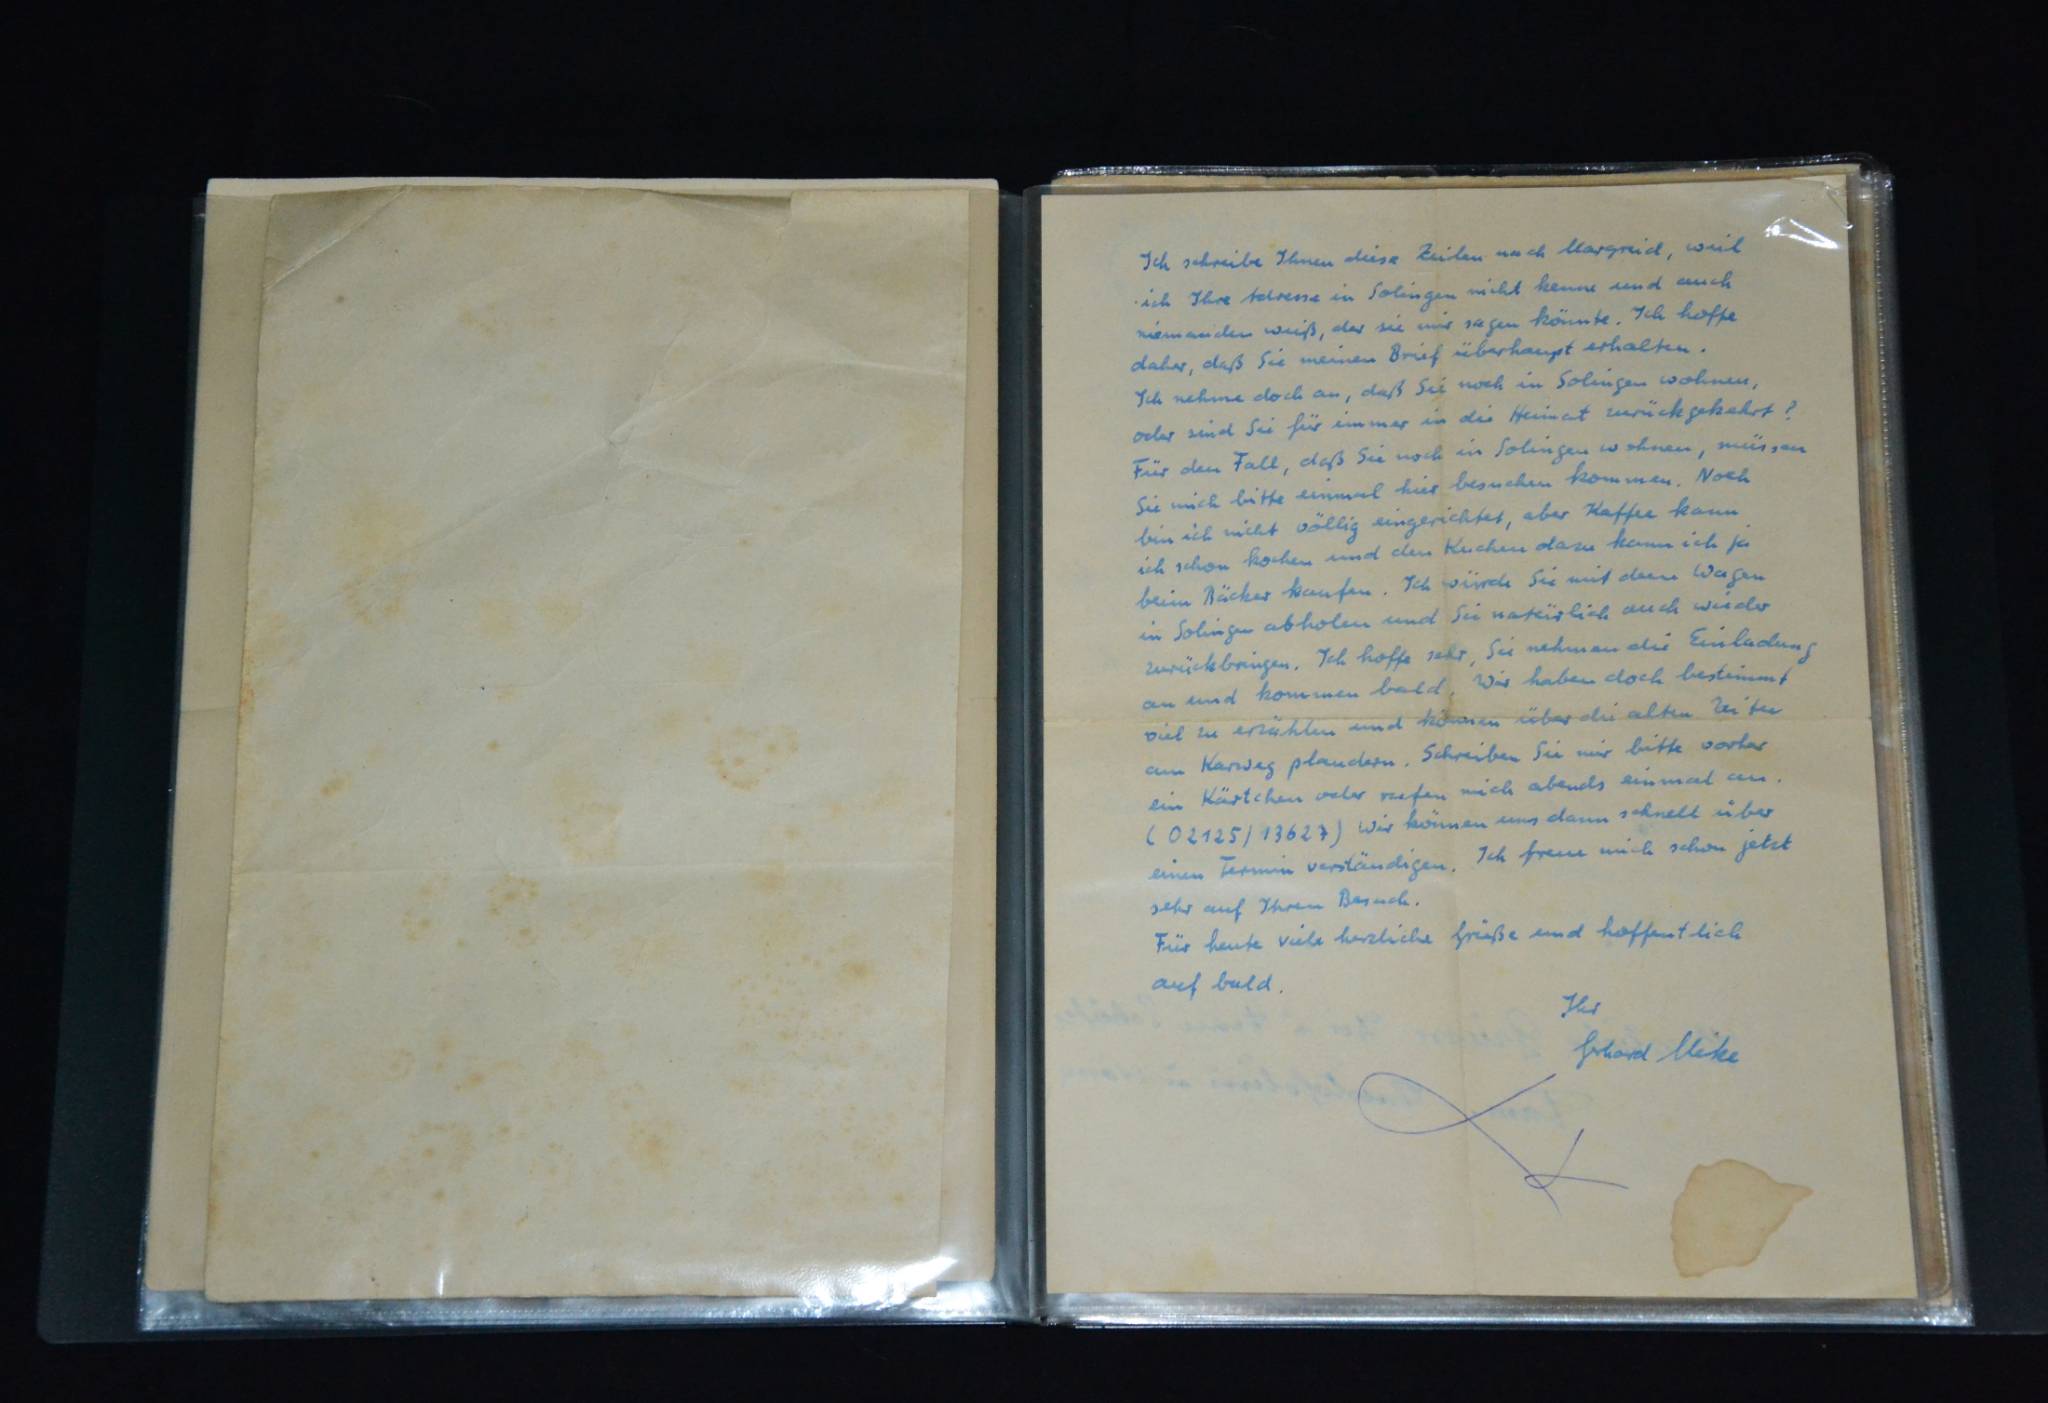 Ich schreibe Ihnen diese Zeilen nach Margreid, weil
ich Ihre Adresse in Solingen nicht kenne und auch
niemanden weiß, der sie mir sagen könnte. Ich hoffe
daher, daß Sie meinen Brief überhaupt erhalten.
Ich nehme doch an, daß Sie noch in Solingen wohnen,
oder sind Sie für immer in die Heimat zurückgekehrt?
Für den Fall, daß Sie noch in Solingen wohnen, müssen
Sie mich bitte einmal hier besuchen kommen. Noch
bin ich nicht völlig eingerichtet, aber Kaffee kann
ich schon kochen und den Kuchen dazu kann ich ja
beim Bäcker kaufen. Ich würde Sie mit dem Wagen
in Solingen abholen und Sie natürlich auch wieder
zurückbringen. Ich hoffe sehr, Sie nehmen die Einladung
an und kommen bald. Wir haben doch bestimmt
viel zu erzählen und können über die alten Zeiten
am Karweg plaudern. Schreiben Sie mir bitte vorher
ein Kärtchen oder rufen mich abends einmal an.
(02125/13627) Wir können uns dann schnell über
einen Termin verständigen. Ich freue mich schon jetzt
sehr auf Ihren Besuch.
Für heute viele herzliche Grüße und hoffentlich
auf bald.
Ihr
Gerhard